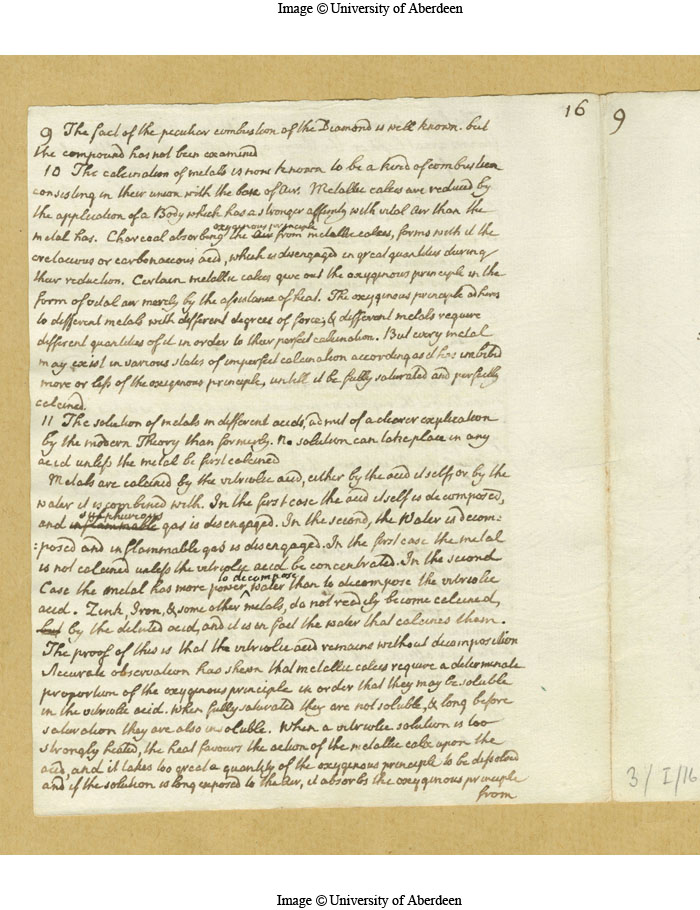 Image © University of Aberdeen
16
9
9 The fact of the peculiar combustion of the Diamond is well known. but
the compound has not been examined
10 The calcination of metals is now known to be a kind of combustion
consisting in their union with the base of air. Metallic calces are reduced by
the application of a Body which has a stronger affinity with vital air than the
metal has. Charcoal absorbing the air from metallic calces, forms with it the
oxygenous principle
cretaceous or carbonaceous acid, which is disengaged in great quantities during
their reduction. Certain metallic calces give out the oxygenous principle in the
form of vital air merely by the assistance of heat. The oxygenous principle adheres
to different metals with different degrees of force; & different metals require
different quantities of it in order to their perfect calcination. But every metal
may exist in various states of imperfect calcination according as it has imbibed
more or less of the oxygenous principle, untill it be fully saturated and perfectly
calcined.
11 The solution of metals in different acids, admit of a clearer explication
by the modern Theory than formerly. No solution can take place in any
acid unless the metal be first calcined
Metals are calcined by the vitriolic acid, either by the acid itself, or by the
water it is combined with. In the first case the acid itself is decomposed,
sulphureous
and inflammable gas is disengaged. In the second, the Water is decom-
:posed and inflammable gas is disengaged. In the first case the metal
is not calcined unless the vitriolic acid be concentrated. In the second
Case the metal has more power to decompose water than to decompose the vitriolic
acid. Zink, Iron, & some other metals, do not readily become calcined,
but by the diluted acid, and it is in fact the water that calcines them.
The proof of this is that the vitriolic acid remains without decomposition
Accurate observation has shewn that metallic calces require a determinate
proportion of the oxygenous principle in order that they may be soluble
in the vitriolic acid. When fully saturated they are not soluble, & long before
saturation they are also insoluble. When a vitriolic solution is too
strongly heated, the heat favours the action of the metallic calx upon the
acid, and it takes too great a quantity of the oxygenous principle to be dissolved
and if the solution is long exposed to the air, it absorbs the oxygenous principle
from
3/I/16
Image © University of Aberdeen